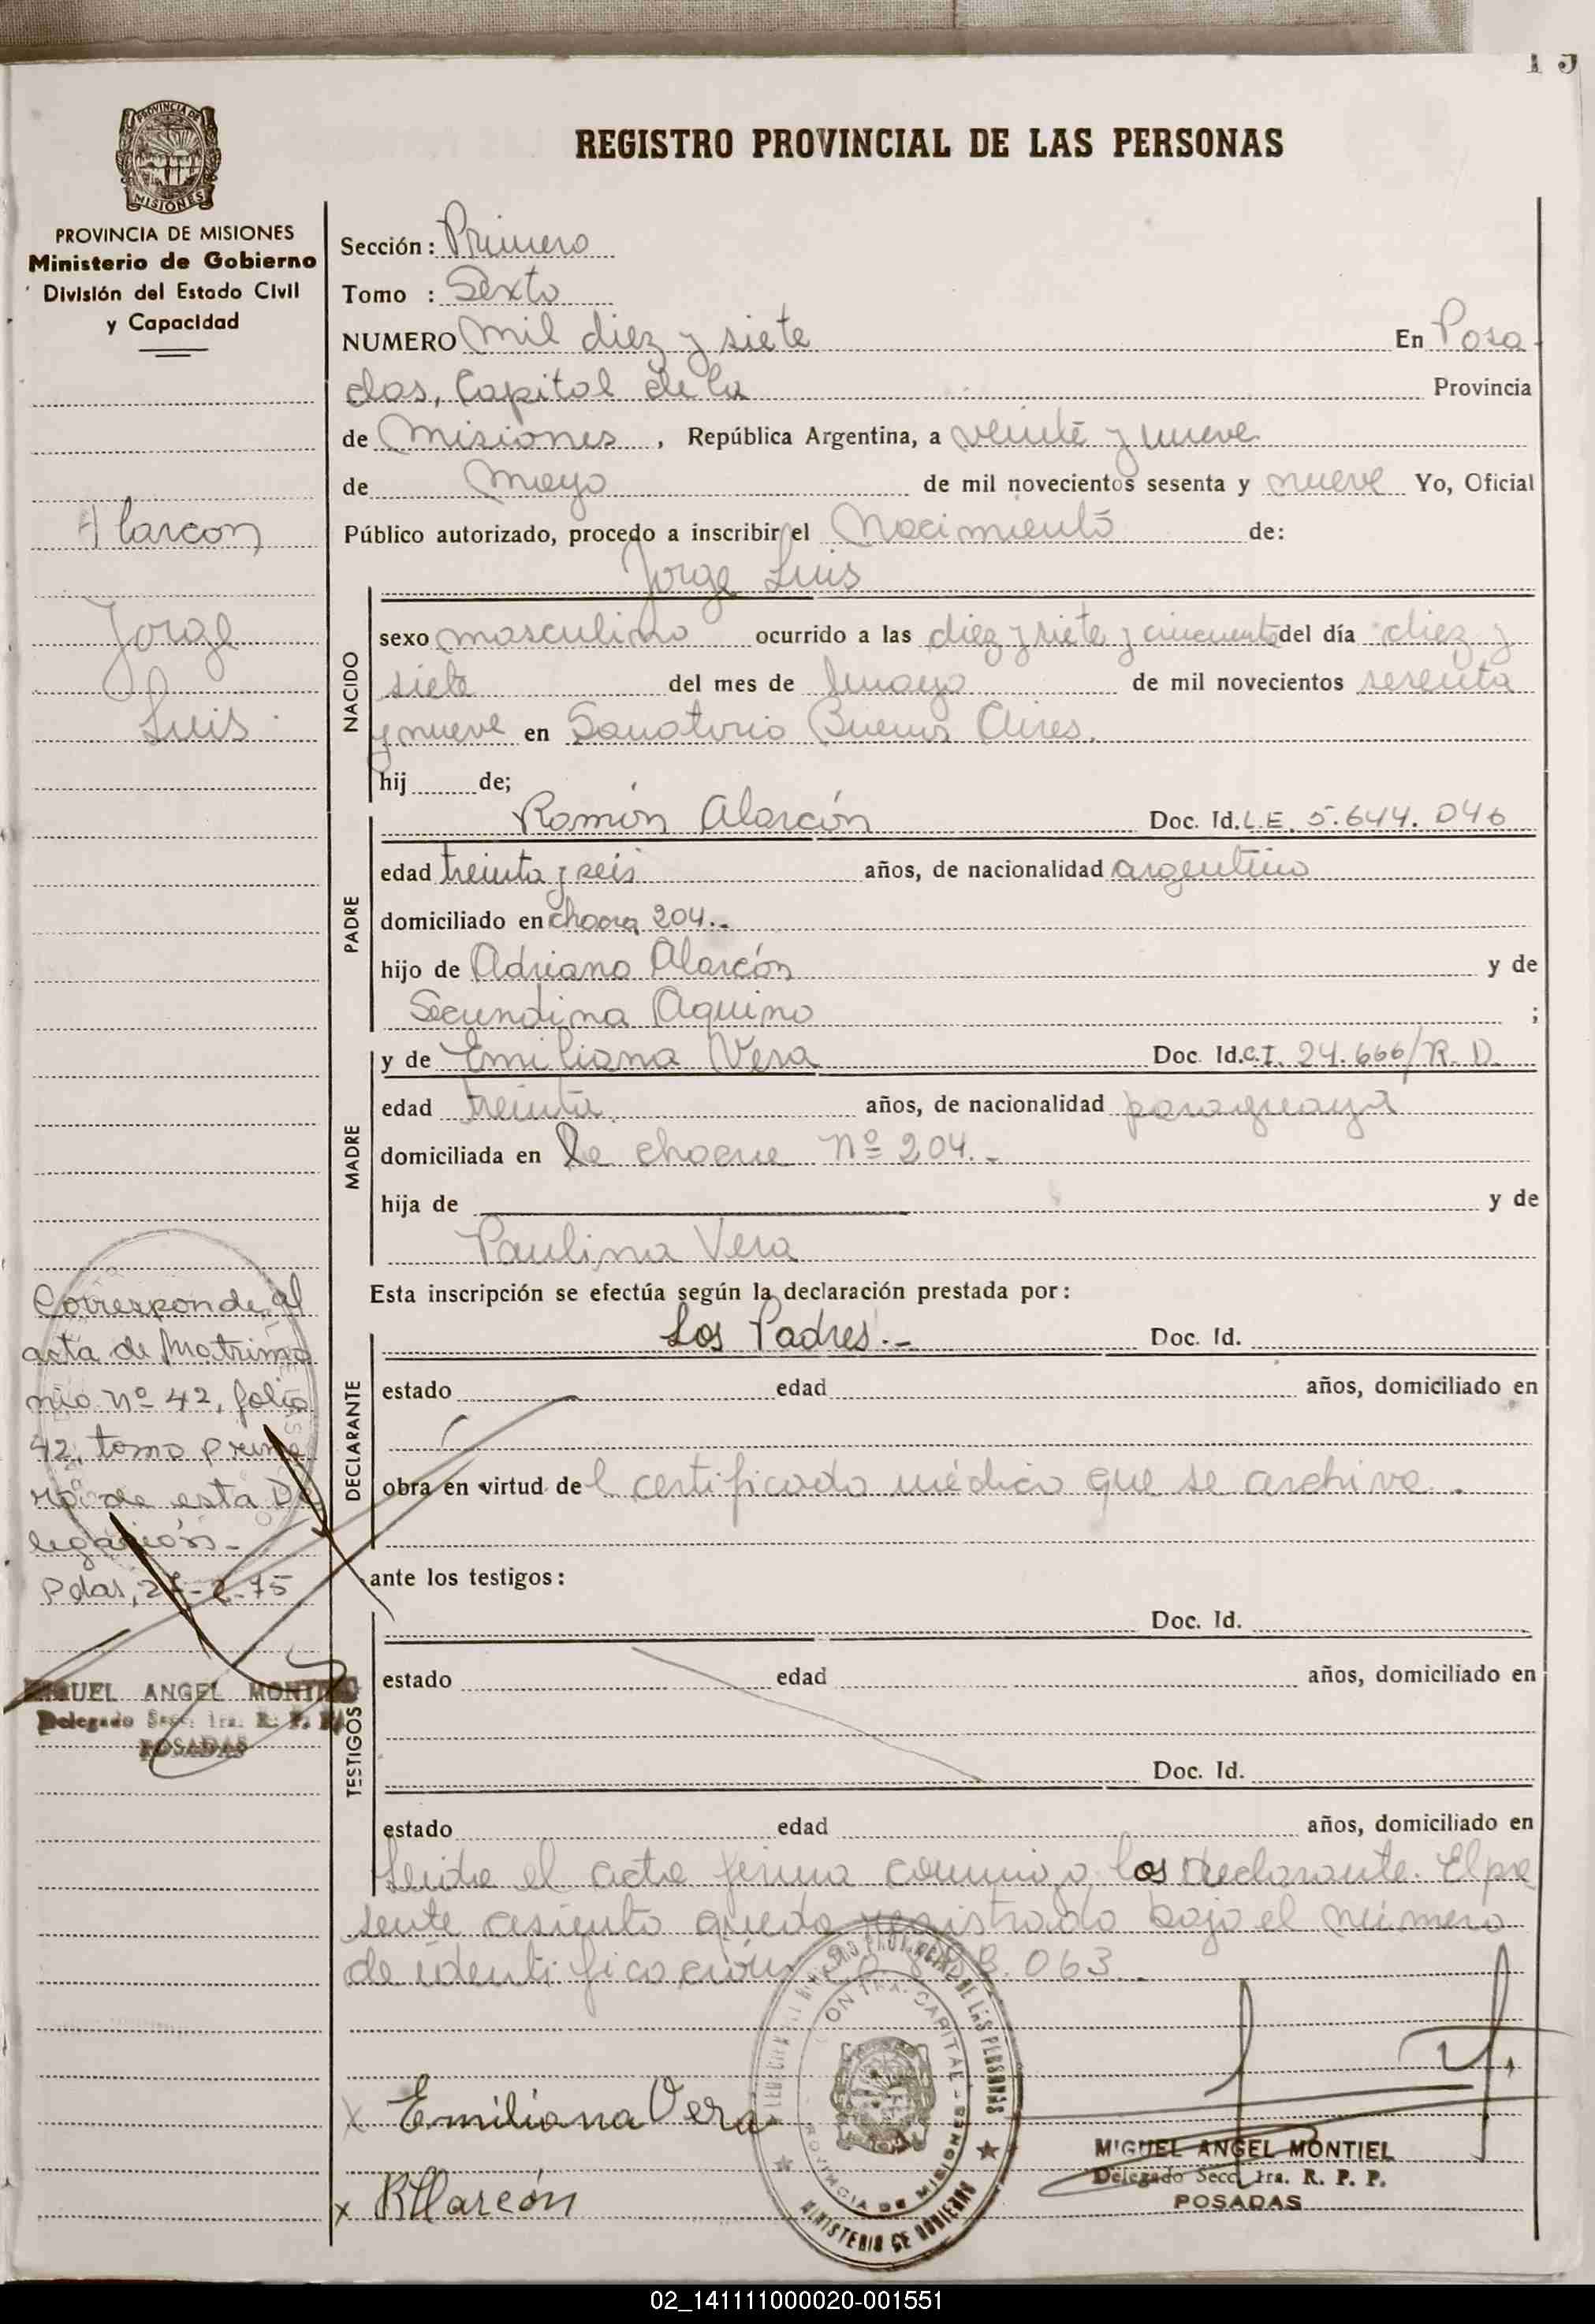 REGISTRO PROVINCIAL DE LAS PERSONAS
PROVINCIA DE MISIONES
Ministerio de Gobierno
División del Estado Civil
y Capacidad
Alarcon
Jorge
Luis
Corresponde al
acta de Matrimo
nio Nº 42, folio
42, tomo prime
ro de esta De
legación.-
Pdas, 27-2-75
MIGUEL ANGEL MONTIEL
Delegado Secc. 1ra. R. P. P.
POSADAS
Sección: Primero
Tomo : Sexto
NUMERO Mil diez y siete En Posa
das, Capital de la Provincia
de Misiones, República Argentina, a veinte y nueve
de Mayo de mil novecientos sesenta y nueve Yo, Oficial
Público autorizado, procedo a inscribir el Nacimiento de:
Jorge Luis
NACIDO
sexo masculino ocurrido a las diez y siete y cincuenta del día diez y
siete del mes de mayo de mil novecientos sesenta
y nueve en Sanatorio Buenos Aires.
hij de;
PADRE
Ramón Alarcón Doc. Id. L.E. 5.644.046
edad treinta y seis años, de nacionalidad argentino
domiciliado en chacra 204.-
hijo de Adriano Alarcón y de
Secundina Aquino ;
MADRE
y de Emiliana Vera Doc. Id. C.I. 24.666/R.D.
edad treinta años, de nacionalidad paraguaya
domiciliada en la Nº 204.-
hija de y de
Paulina Vera
Esta inscripción se efectúa según la declaración prestada por:
DECLARANTE
Los Padres.- Doc. Id.
estado edad años, domiciliado en
obra en virtud del certificado médico que se archiva.
ante los testigos:
TESTIGOS
Doc. Id.
estado edad años, domiciliado en
Doc. Id.
estado edad años, domiciliado en
Leida el acta firma conmigo los declarante. El pre
sente asiento queda registrado bajo el número
de identificación 063.
Emiliana Vera
RAlarcón
MINISTERIO DE GOBIERNO
PROVINCIA DE MISIONES
MIGUEL ANGEL MONTIEL
Delegado Secc. 1ra. R. P. P.
POSADAS
02_141111000020-001551